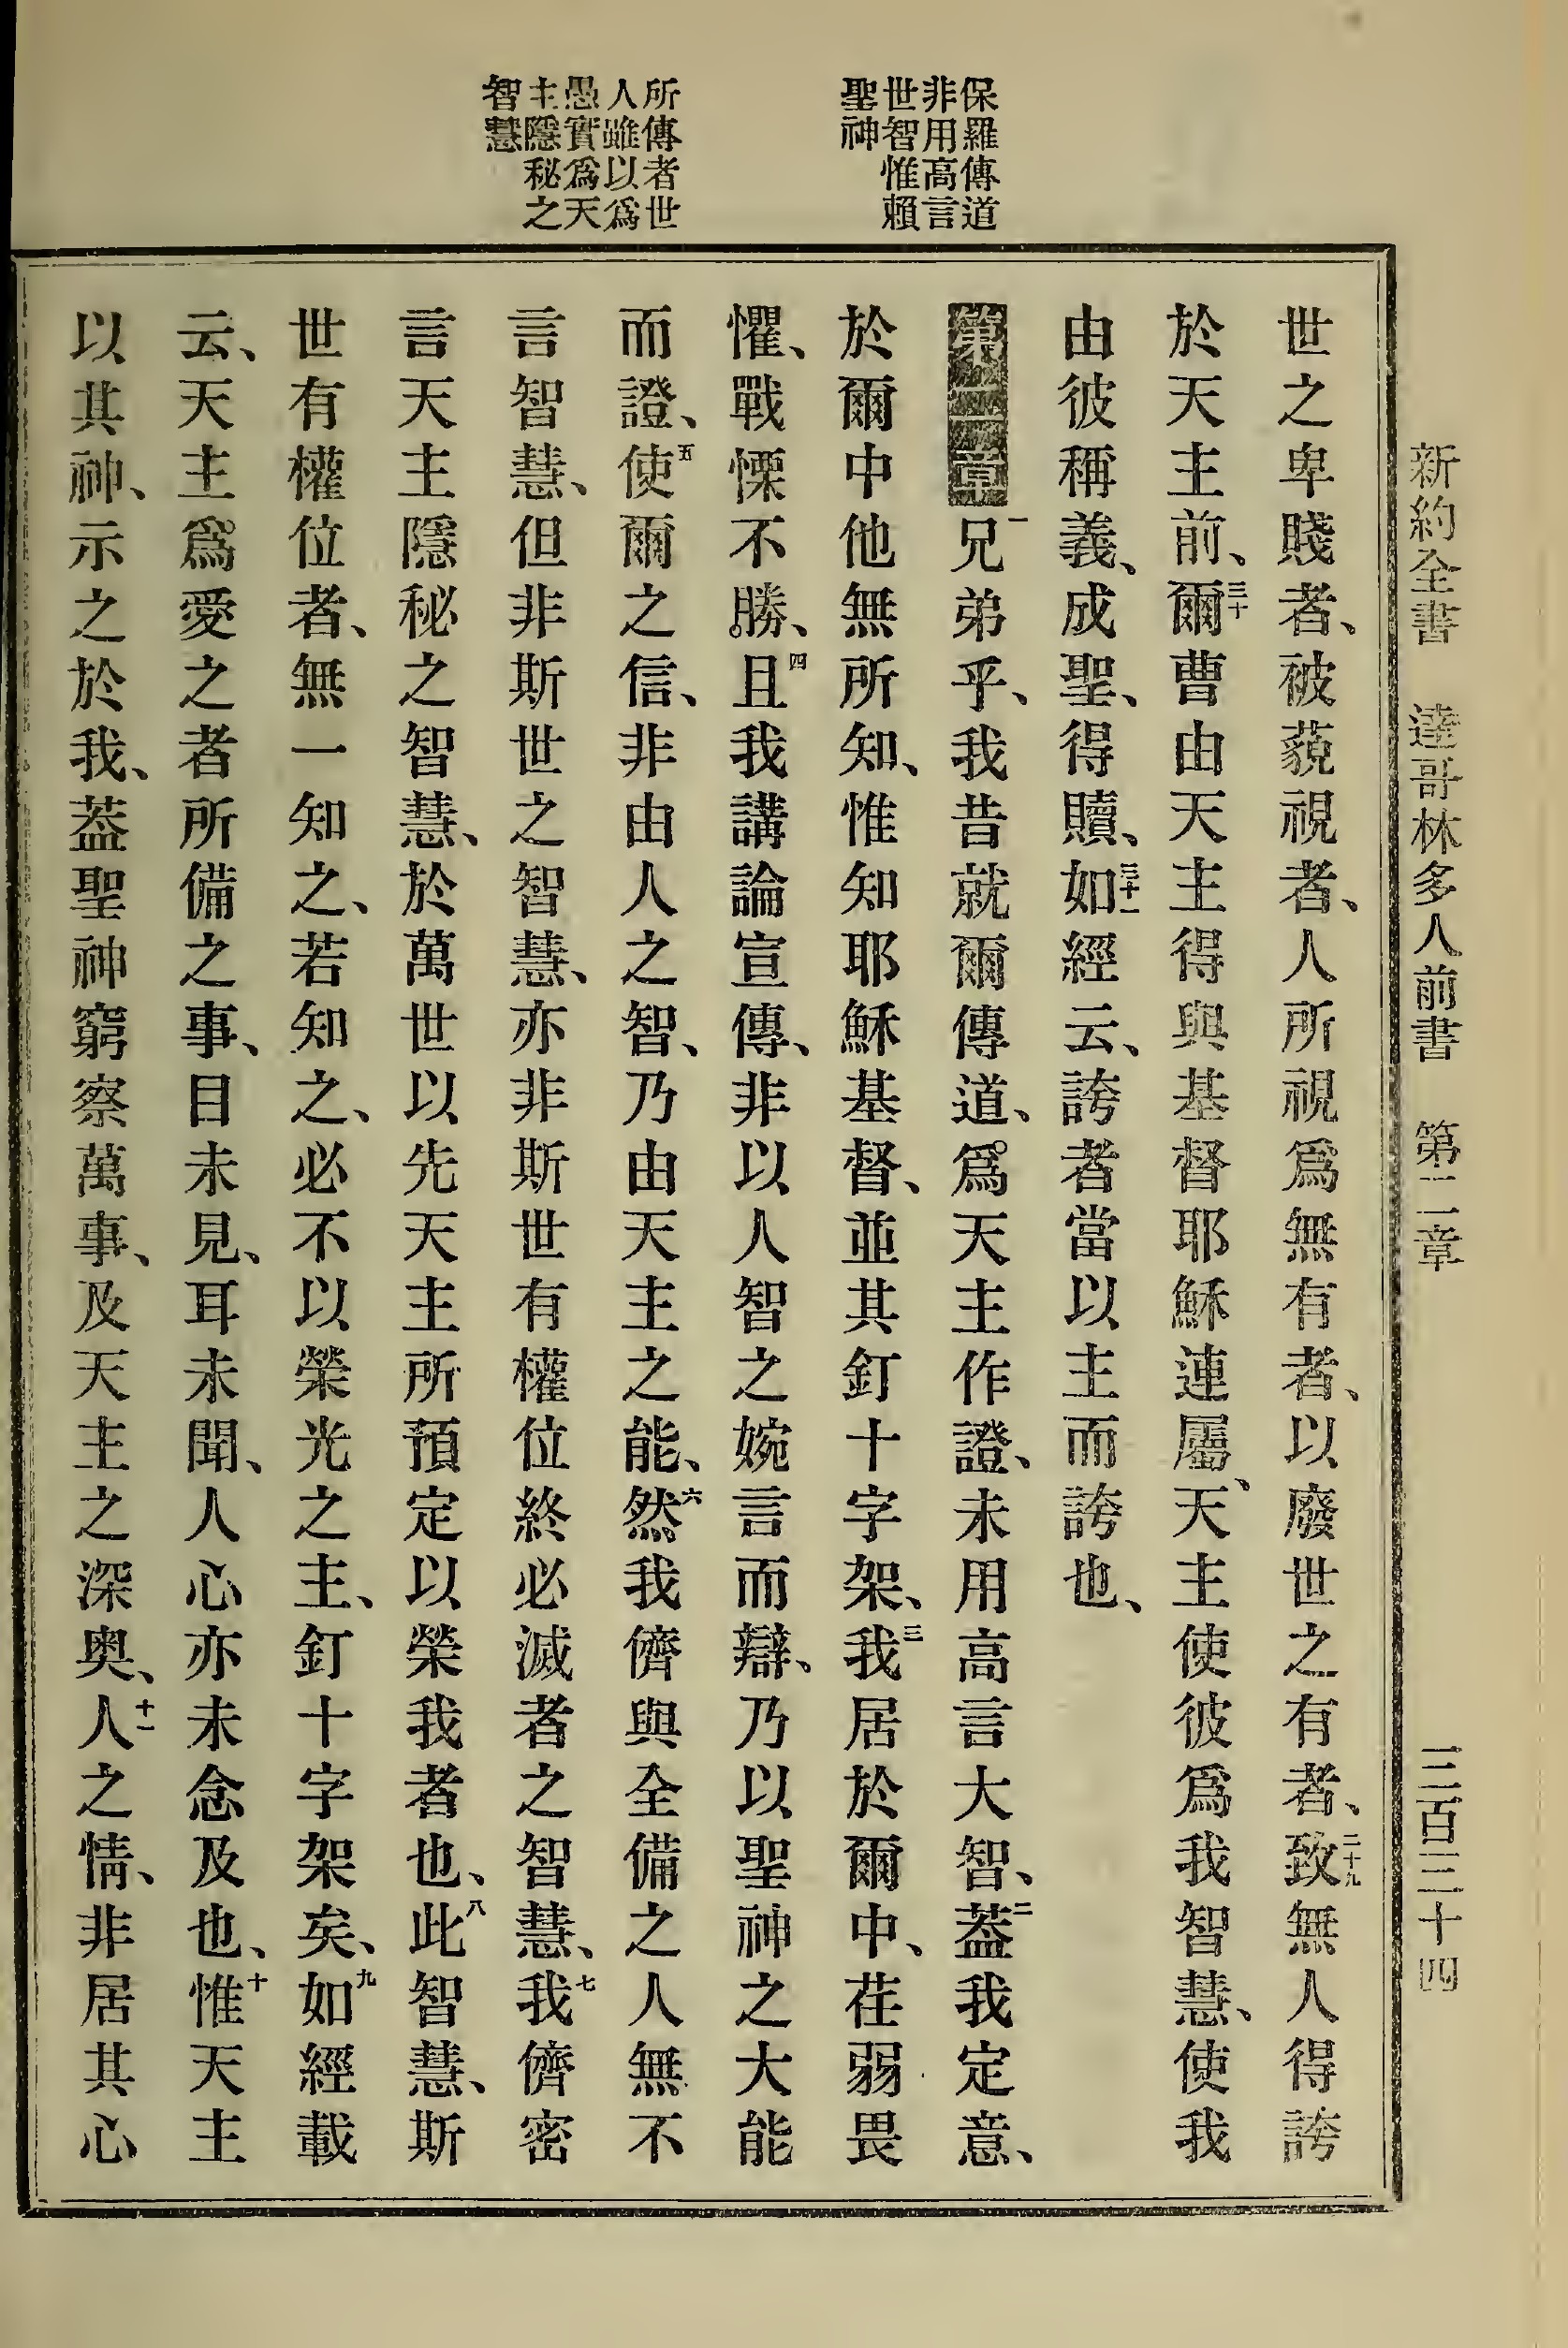 新約全書 達哥林多人前書 第二章 三百三十四
保羅傳道
非用高言
世智惟賴
聖神
所傳者世
人雖以爲
愚實爲天
主隱秘之
智慧
世之卑賤者、被藐視者、人所視爲無有者、以廢世之有者、二十九致無人得誇
於天主前、三十爾曹由天主得與基督耶穌連屬、天主使彼爲我智慧、使我
由彼稱義、成聖、得贖、三十一如經云、誇者當以主而誇也、
第二章 一兄弟乎、我昔就爾傳道、爲天主作證、未用高言大智、二蓋我定意、
於爾中他無所知、惟知耶穌基督、並其釘十字架、三我居於爾中、荏弱畏
懼、戰慄不勝、四且我講論宣傳、非以人智之婉言而辯、乃以聖神之大能
而證、五使爾之信、非由人之智、乃由天主之能、六然我儕與全備之人無不
言智慧、但非斯世之智慧、亦非斯世有權位終必滅者之智慧、七我儕密
言天主隱秘之智慧、於萬世以先天主所預定以榮我者也、八此智慧、斯
世有權位者、無一知之、若知之、必不以榮光之主、釘十字架矣、九如經載
云、天主爲愛之者所備之事、目未見、耳未聞、人心亦未念及也、十惟天主
以其神、示之於我、葢聖神窮察萬事、及天主之深奥、十一人之情、非居其心